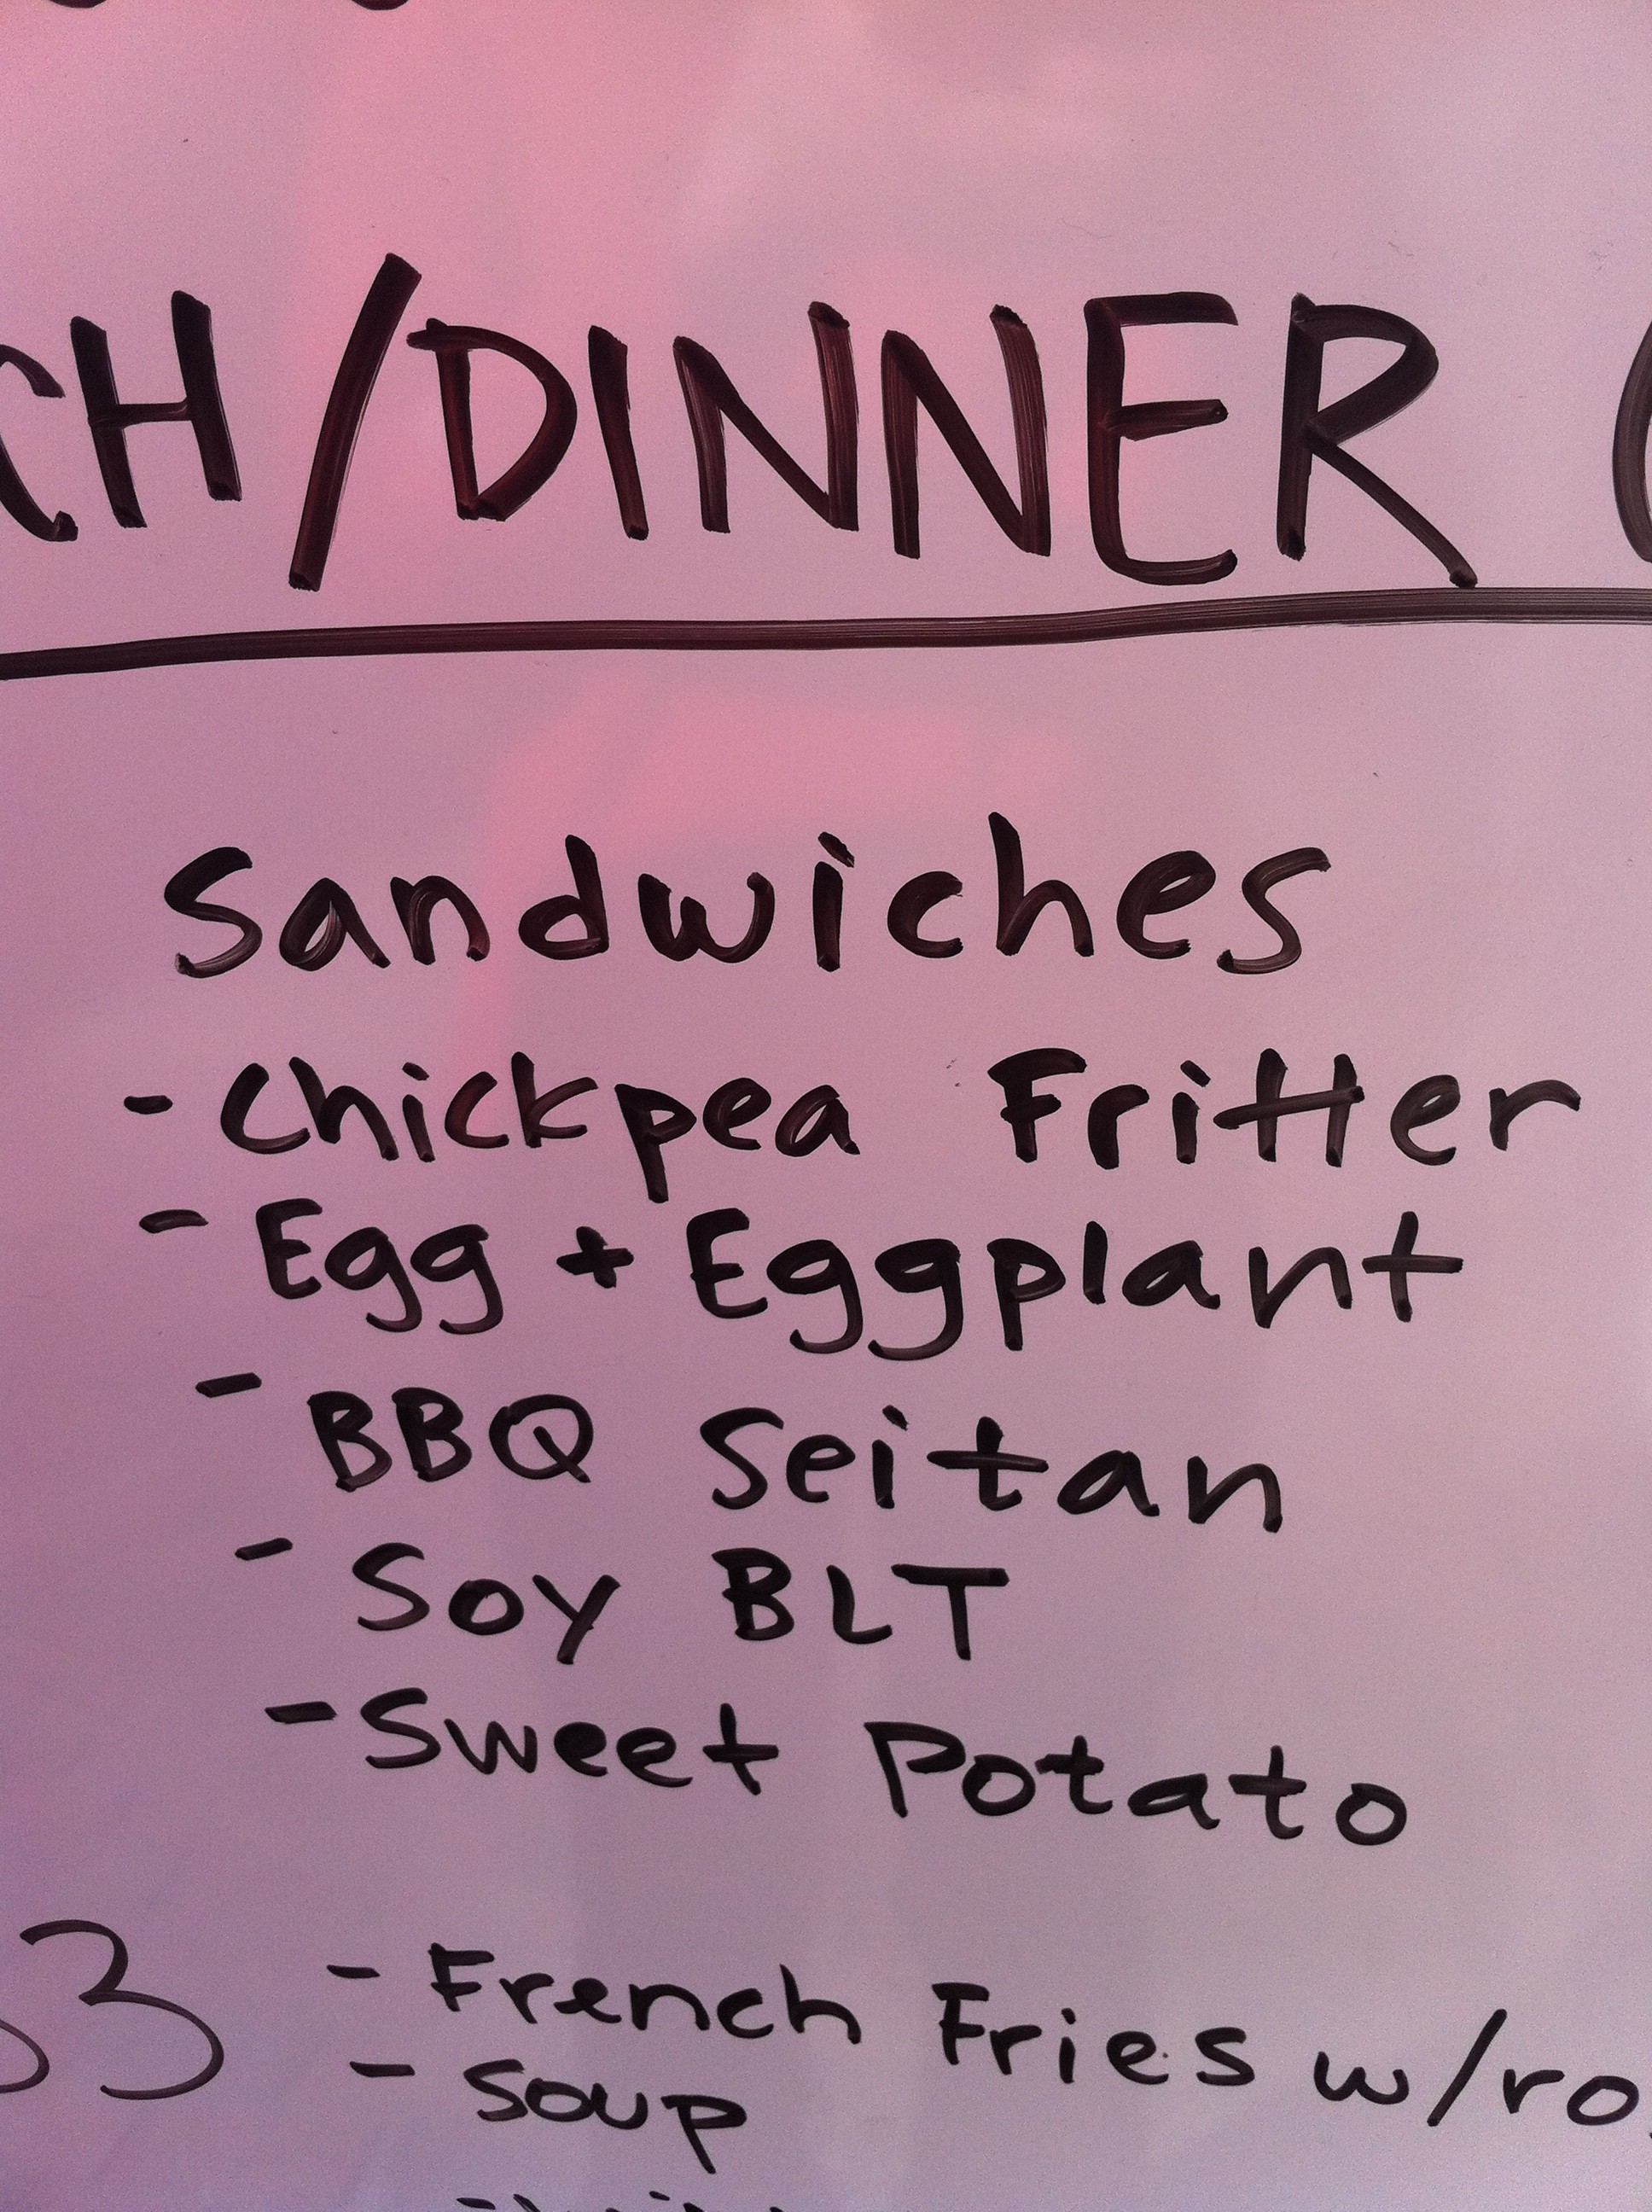 CH/DINNER (
Sandwiches
- Chickpea Fritter
- Egg + Eggplant
- BBQ Seitan
- Soy BLT
- Sweet Potato
3 - French Fries w/ro
- Soup